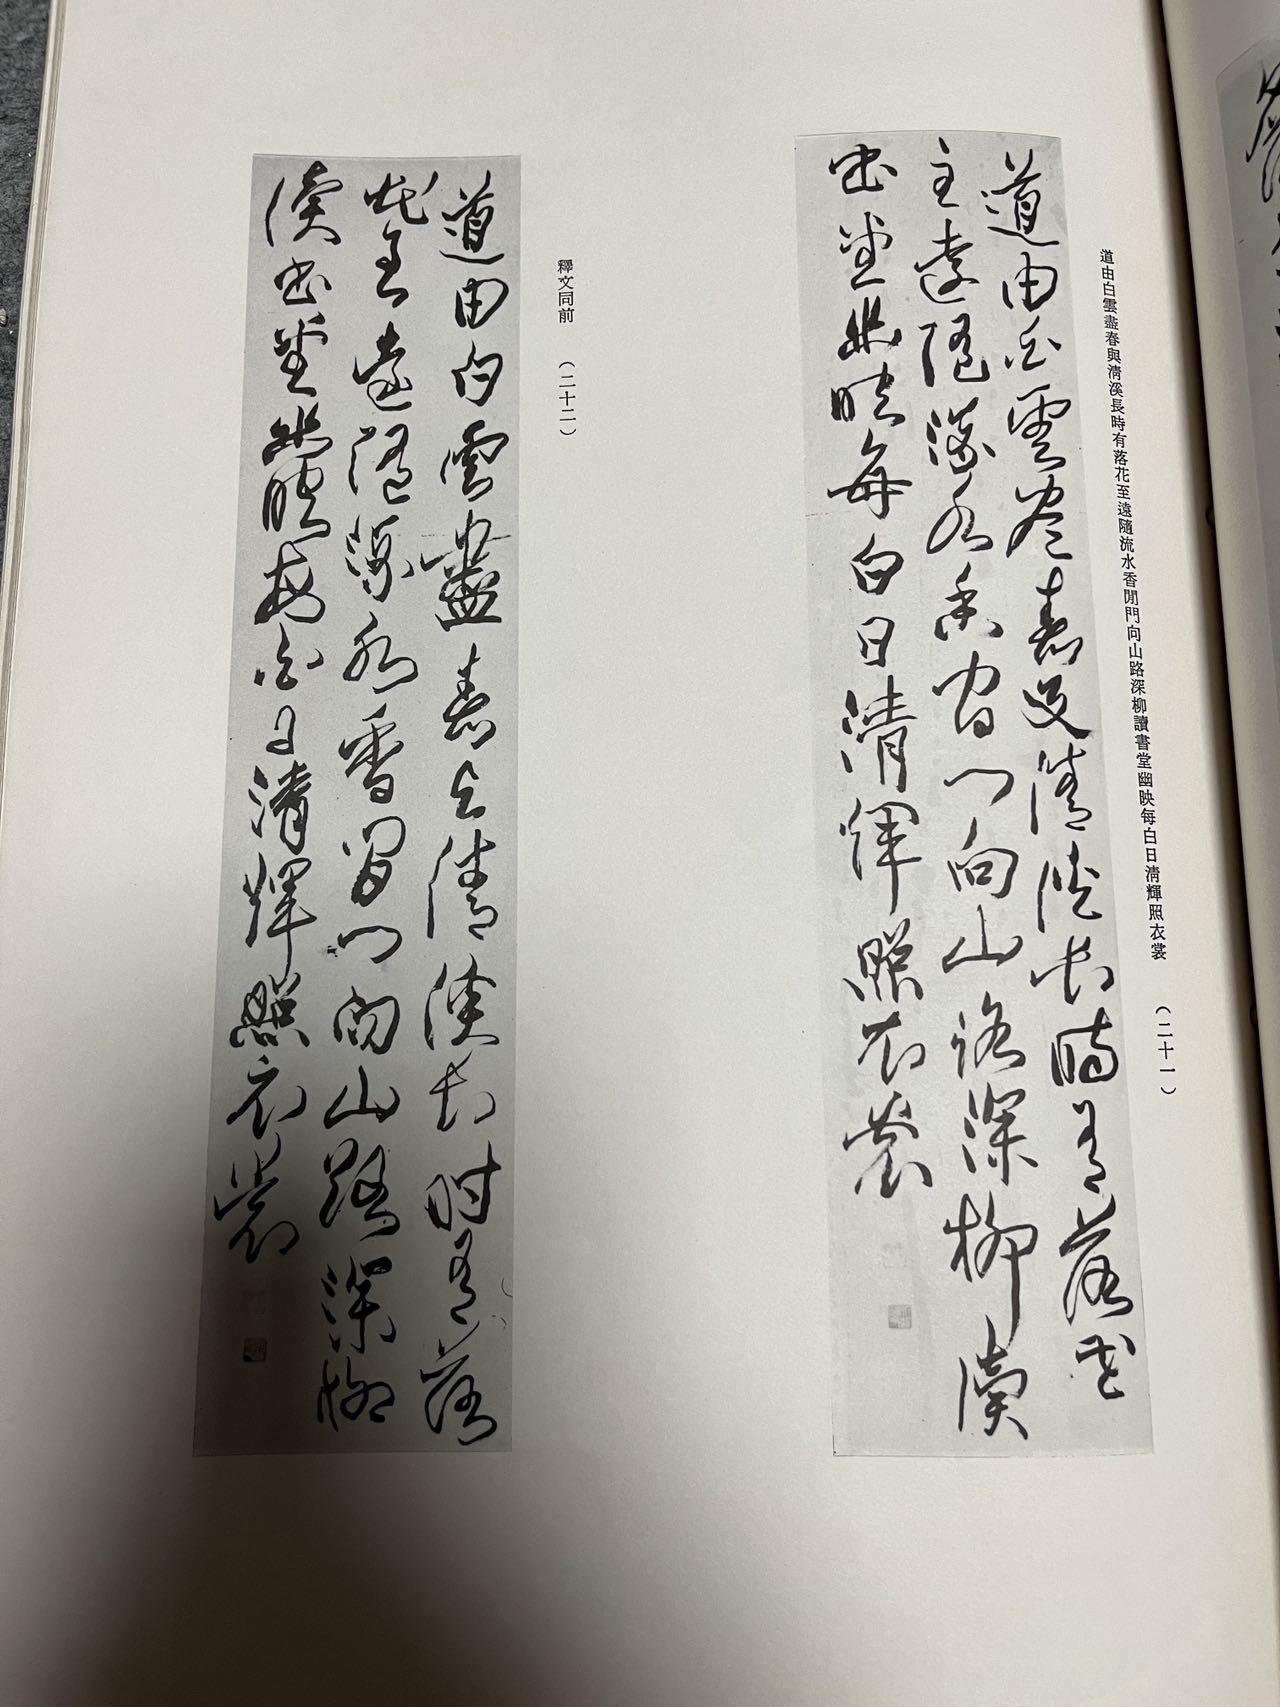 道由白雲盡春與淸溪長時有落花至遠隨流水香閒門向山路深柳讀書堂幽映每白日淸輝照衣裳
（二十一）
道由白雲盡春與清溪長時有落花
至遠隨流水香閒門向山路深柳讀
書堂幽映每白日清輝照衣裳
釋文同前
（二十二）
道由白雲盡春與清溪長時有落
花至遠隨流水香閒門向山路深柳
讀書堂幽映每白日清輝照衣裳